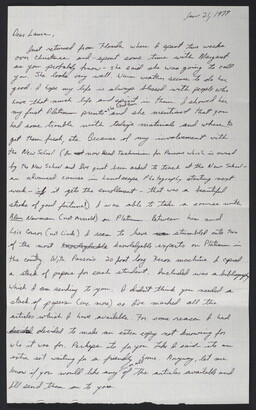 Jan 21, 1979
Dear Laura,
Just returned from Florida where I spent two weeks
over Christmas and spent some time with Margaret
as you probably know - she said she was going to call
you. She looks very well. Warm weather seems to do her
good. I hope my life is always blessed with people who
have that much life and spirit in them. I showed her
my first Platinum prints and she mentioned that you
had some trouble with today's materials and wanting to
get them fresh, etc. Because of my involvement with
the New School (I'm now Head Technician for Parsons which is owned
by the New School and I've just been asked to teach at the New School -
an advanced course in Landscape Photography, starting next
week - if it gets the enrollment - that was a beautiful
stroke of good fortune!) I was able to take a course with
Newman (not Arnold) on Platinum. Between him and
Lois Conner (not Linda) I seem to have stumbled into two
of the most knowledgable experts on Platinum in
the country. With Parson's 20 foot long Xerox machine I xeroxed a
stack of papers for each student. Included was a bibliography
which I am sending to you. I didn't think you needed a
stack of papers (one more) so I've marked all the
articles which I have available. For some reason I had
decided to make an extra copy not knowing for
who it was for. Perhaps it's for you. Like I said, it's an
extra set waiting for a friendly home. Anyway, let me
know if you would like any of the articles available and
I'll send them on to you.